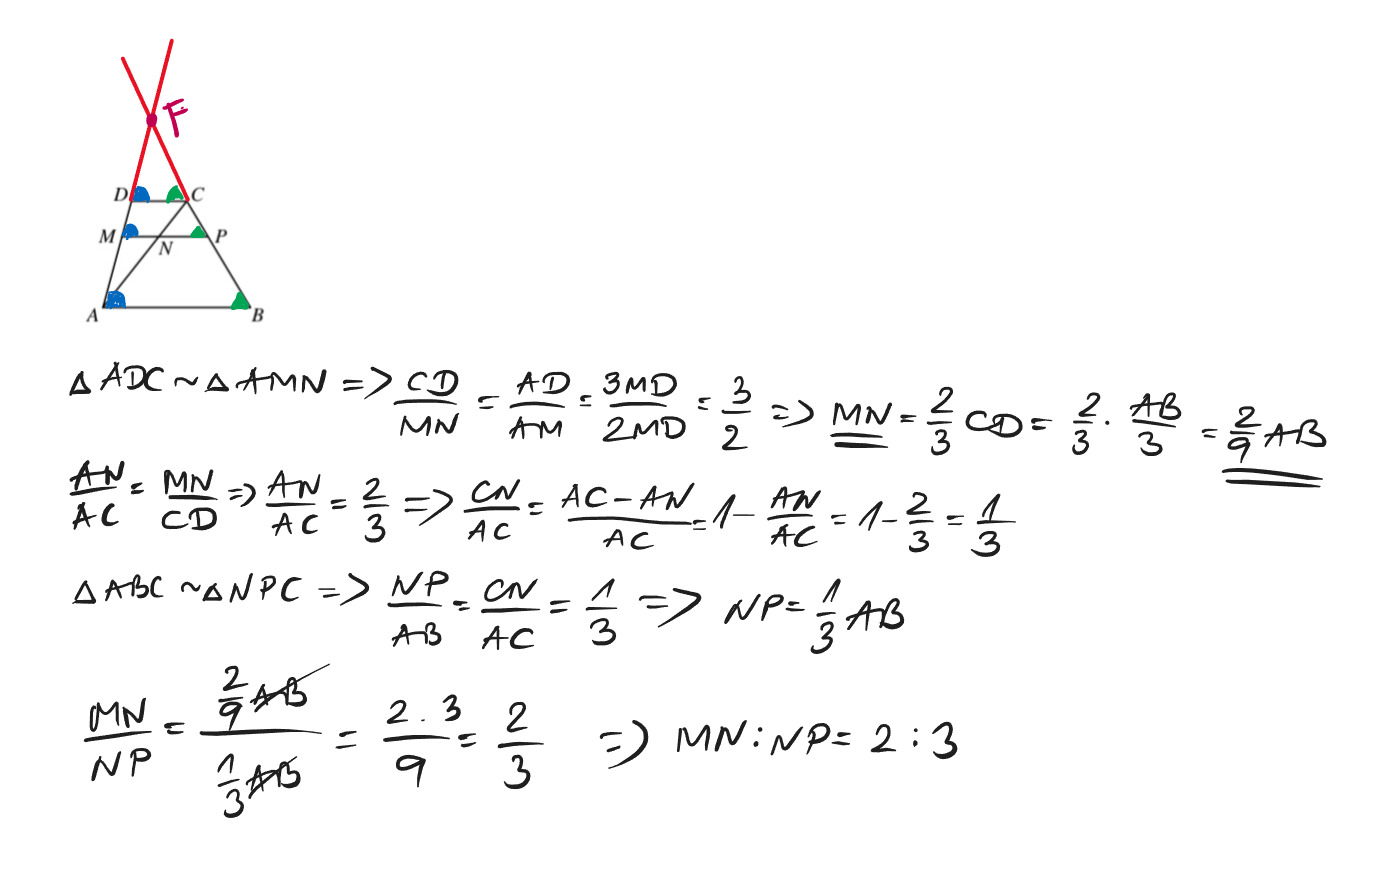 F
D C
M N P
A B
△ ADC ~ △ AMN => CD/MN = AD/AM = 3MD/2MD = 3/2 => MN = 2/3 CD = 2/3 · AB/3 = 2/9 AB
AN/AC = MN/CD => AN/AC = 2/3 => CN/AC = AC-AN/AC = 1 - AN/AC = 1 - 2/3 = 1/3
△ ABC ~ △ NPC => NP/AB = CN/AC = 1/3 => NP = 1/3 AB
MN/NP = 2/9 AB / 1/3 AB = 2 . 3/9 = 2/3 => MN : NP = 2 : 3